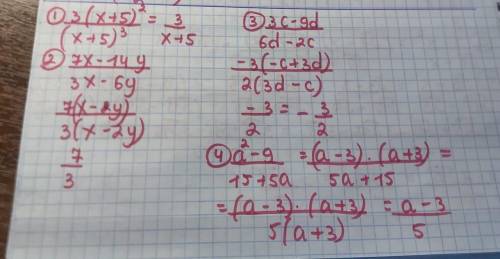 ① 3(x+5)² / (x+5)³ = 3 / x+5
② 7x-14y / 3x-6y
7(x-2y) / 3(x-2y)
7 / 3
③ 3c-9d / 6d-2c
-3(-c+3d) / 2(3d-c)
-3 / 2 = - 3 / 2
④ a²-9 / 15+5a = (a-3)·(a+3) / 5a+15 =
= (a-3)·(a+3) / 5(a+3) = a-3 / 5